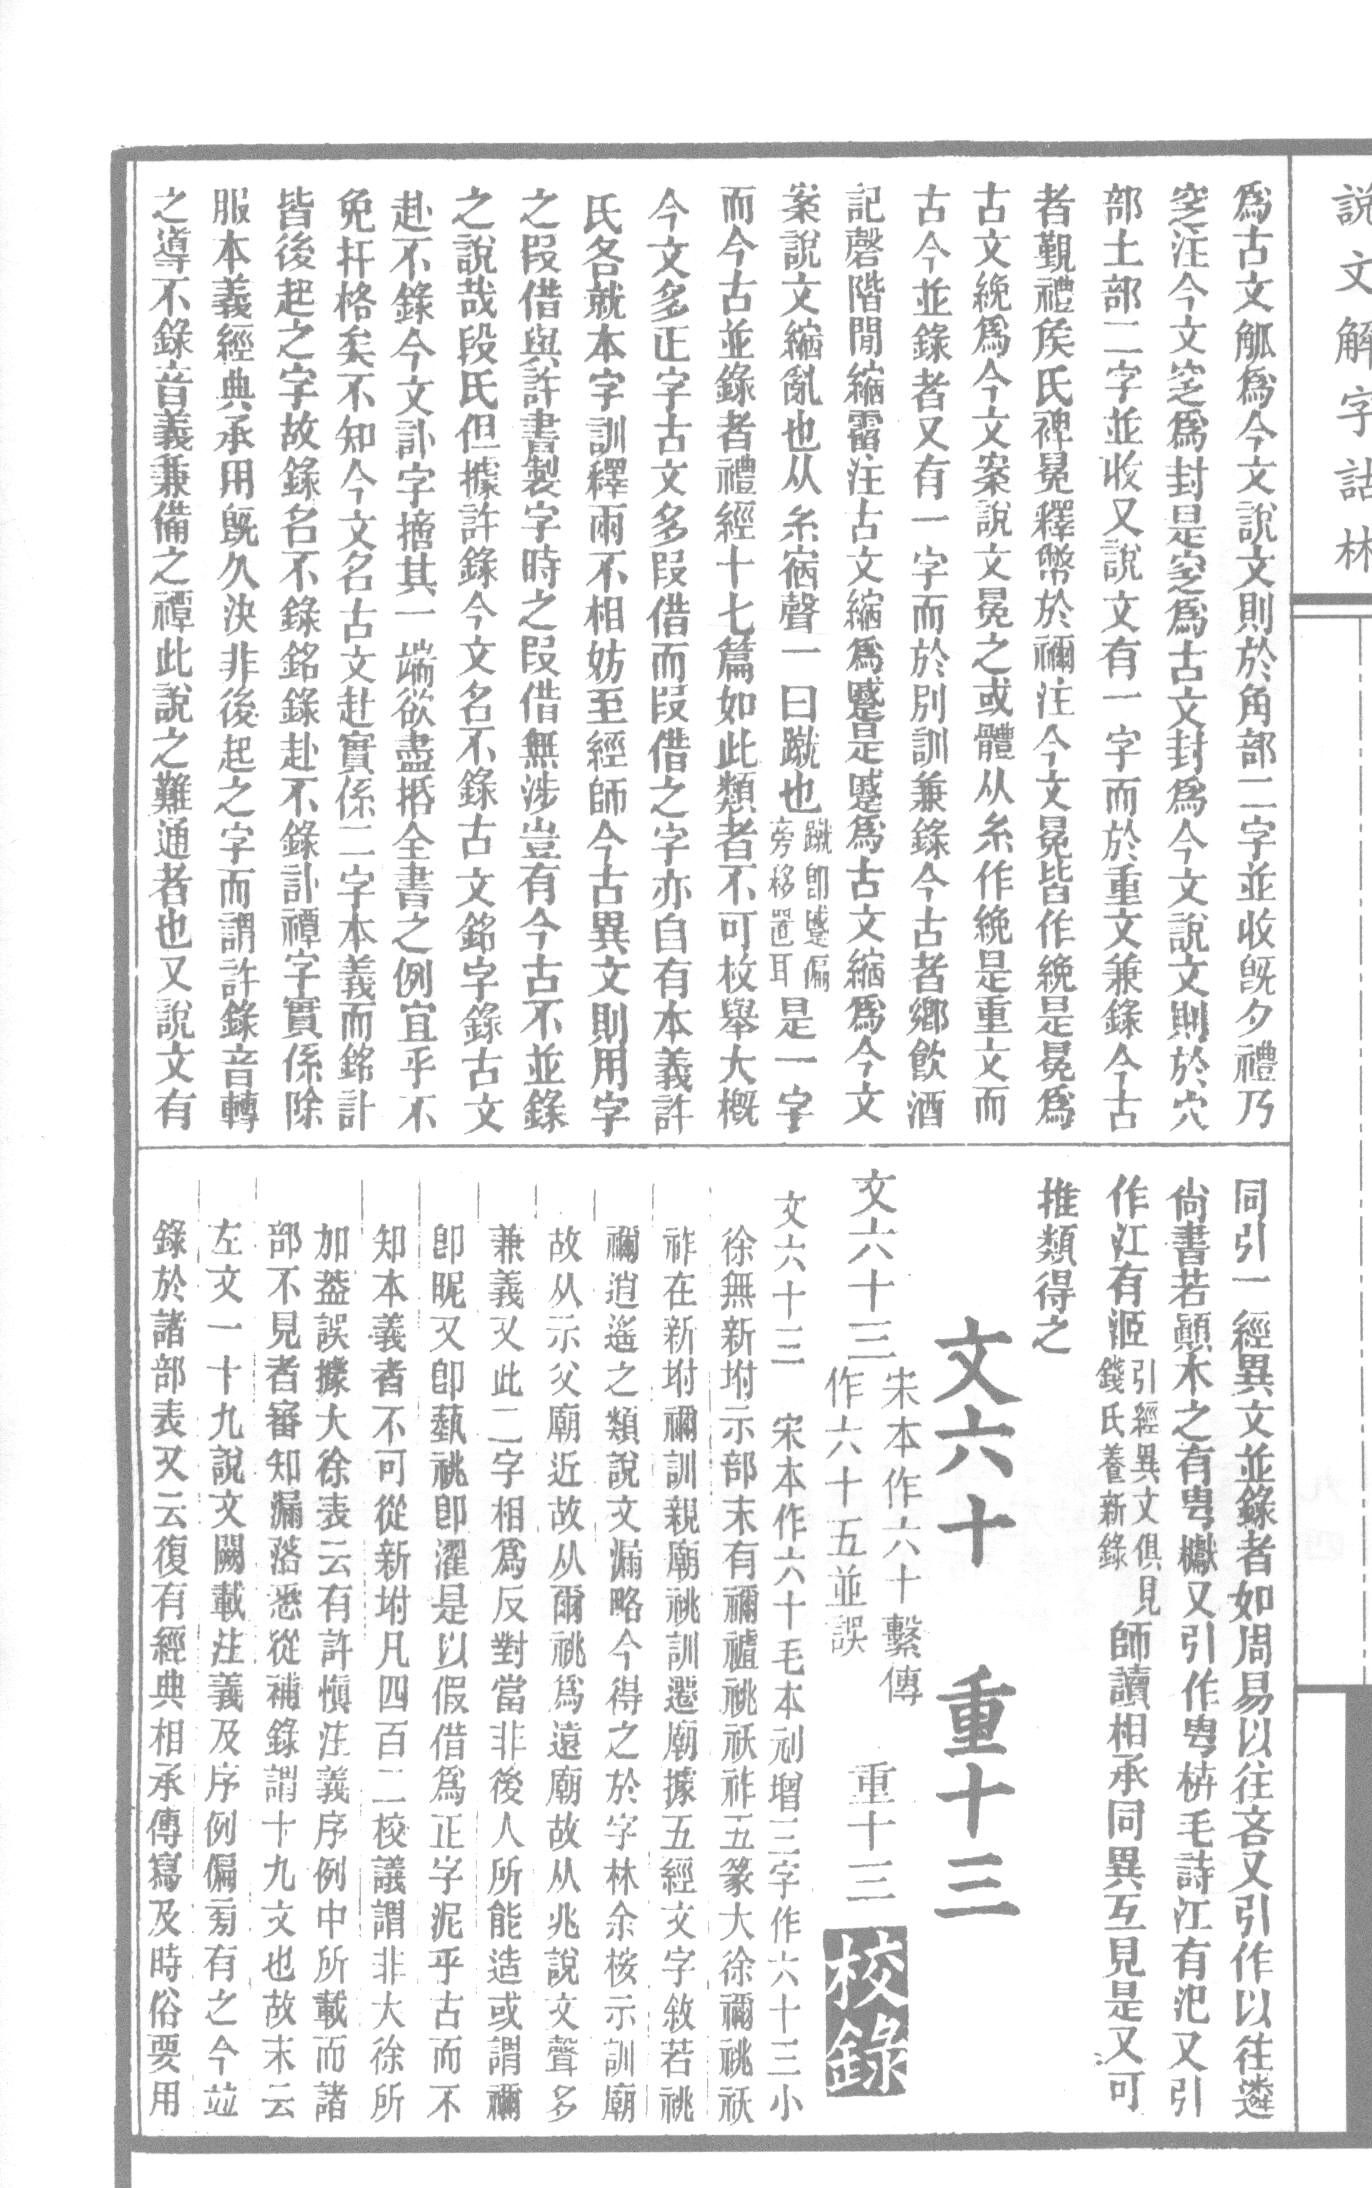 說文解字詁林
爲古文觚爲今文說文則於角部二字並收旣夕禮乃
窆注今文窆爲封是窆爲古文封爲今文說文則於穴
部土部二字並收又說文有一字而於重文兼錄今古
者覲禮矦氏裨冕釋幣於禰注今文冕皆作絻是冕爲
古文絻爲今文案說文冕之或體从糸作絻是重文而
古今並錄者又有一字而於別訓兼錄今古者鄉飮酒
記磬階閒縮霤注古文縮爲蹙是蹙爲古文縮爲今文
案說文縮亂也从糸宿聲一曰蹴也蹴卽蹙偏旁移置耳是一字
而今古並錄者禮經十七篇如此類者不可枚舉大槪
今文多正字古文多叚借而叚借之字亦自有本義許
氏各就本字訓釋兩不相妨至經師今古異文則用字
之叚借與許書製字時之叚借無涉豈有今古不並錄
之說哉段氏但據許錄今文名不錄古文銘字錄古文
赴不錄今文訃字擔其一端欲盡揞全書之例宜乎不
免扞格矣不知今文名古文赴實係二字本義而銘訃
皆後起之字故錄名不錄銘錄赴不錄訃禫字實係除
服本義經典承用旣久決非後起之字而謂許錄音轉
之導不錄音義兼備之禫此說之難通者也又說文有
同引一經異文並錄者如周易以往吝又引作以往遴
尙書若顚木之有甹櫱又引作甹枿毛詩江有汜又引
作江有洍引經異文俱見錢氏養新錄師讀相承同異互見是又可
推類得之
文六十 重十三
文六十三宋本作六十繫傳作六十五並誤 重十三 校錄
文六十三 宋本作六十毛本刓增三字作六十三小
徐無新坿示部末有禰䄏祧祆祚五篆大徐禰祧祆
祚在新坿禰訓親廟祧訓遷廟據五經文字敘若祧
禰逍遙之類說文漏略今得之於字林余桉示訓廟
故从示父廟近故从爾祧爲遠廟故从兆說文聲多
兼義又此二字相爲反對當非後人所能造或謂禰
卽昵又卽藝祧卽濯是以假借爲正字泥乎古而不
知本義者不可從新坿凡四百二校議謂非大徐所
加葢誤據大徐表云有許愼注義序例中所載而諸
部不見者審知漏落悉從補錄謂十九文也故末云
左文一十九說文闕載注義及序例偏旁有之今竝
錄於諸部表又云復有經典相承傳寫及時俗要用